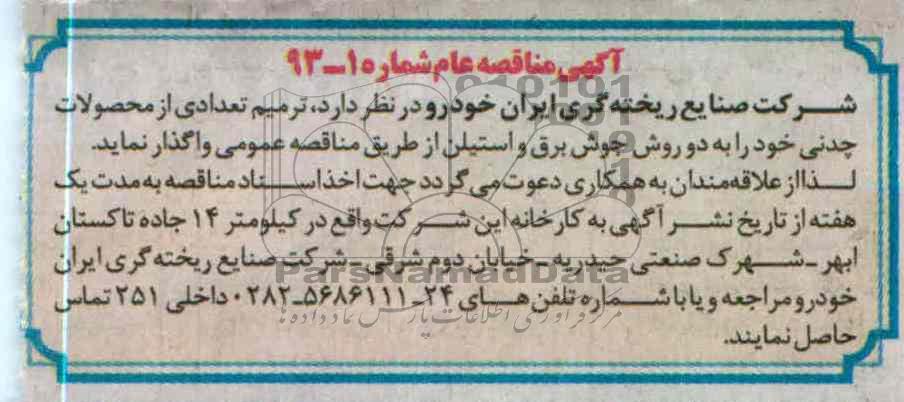 آگهی مناقصه عام شماره ۱ـ۹۳
شرکت صنایع ریخته گری ایران خودرو در نظر دارد، ترمیم تعدادی از محصولات
چدنی خود را به دو روش جوش برق و استیلن از طریق مناقصه عمومی واگذار نماید.
لذا از علاقه‌مندان به همکاری دعوت می گردد جهت اخذ اسناد مناقصه به مدت یک
هفته از تاریخ نشر آگهی به کارخانه این شرکت واقع در کیلومتر ۱۴ جاده تاکستان
ابهر ـ شهرک صنعتی حیدریه ـ خیابان دوم شرقی ـ شرکت صنایع ریخته گری ایران
خودرو مراجعه و یا با شماره تلفن های ۲۴ـ۵۶۸۶۱۱۱ـ۰۲۸۲ داخلی ۲۵۱ تماس
حاصل نمایند.
ParsNamadData
مرکز فرآوری اطلاعات پارس نماد داده ها